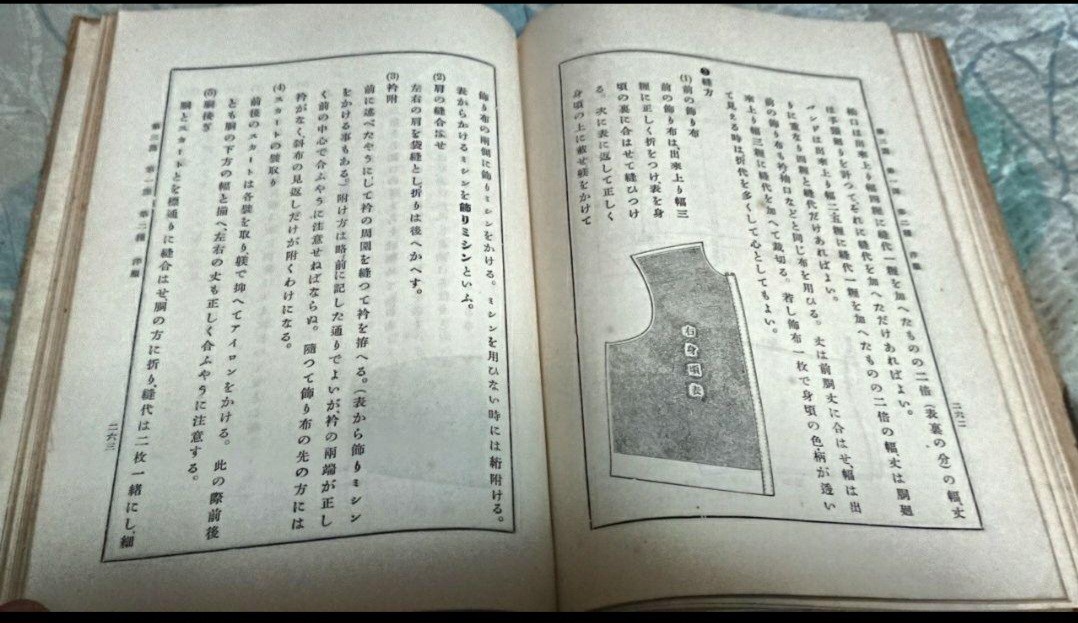 第二節 第一部 第二種 洋服
二六二
袖口は出來上り幅四糎に縫代一糎を加へたものの二倍(表裏の分)の幅、丈
は手頸廻りを計つてそれに縫代を加へただけあればよい。
バンドは出來上り幅二五糎に縫代一糎を加へたものの二倍の幅、丈は胴廻
りに重なり四糎と縫代だけあればよい。
前の飾り布も衿袖口などと同じ布を用ひる。丈は前胴丈に合はせ、幅は出
來上り幅三糎に縫代を加へて裁切る。若し飾布一枚で身頃の色、柄が透い
て見える時は折代を多くして心としてもよい。
縫方
(1)前の飾り布
前の飾り布は出來上り幅三
糎に正しく折をつけ、表を身
頃の裏に合はせて縫ひつけ
る。次に表に返して正しく
身頃の上に載せ躾をかけて
右身頃表
飾り布の兩側に飾りミシンをかける。ミシンを用ひない時には絎附ける。
表からかけるミシンを飾りミシンといふ。
(2)肩の縫合はせ
左右の肩を袋縫とし、折りは後へかへす。
(3)衿附
前に述べたやうにして衿の周圍を縫つて衿を拵へる。(表から飾りミシン
をかける事もある。)附け方は略前に記した通りでよいが、衿の兩端が正し
く前の中心で合ふやうに注意せねばならぬ。隨つて飾り布の先の方には
衿がなく斜布の見返しだけが附くわけになる。
(4)スカートの襞取り
前後のスカートは各襞を取り、躾で抑へてアイロンをかける。此の際前後
とも胴の下方の幅と揃へ、左右の丈も正しく合ふやうに注意する。
(5)胴接ぎ
胴とスカートとを標通りに縫合はせ、胴の方に折り、縫代は二枚一緒にし、細
第二節 第一部 第二種 洋服
二六三